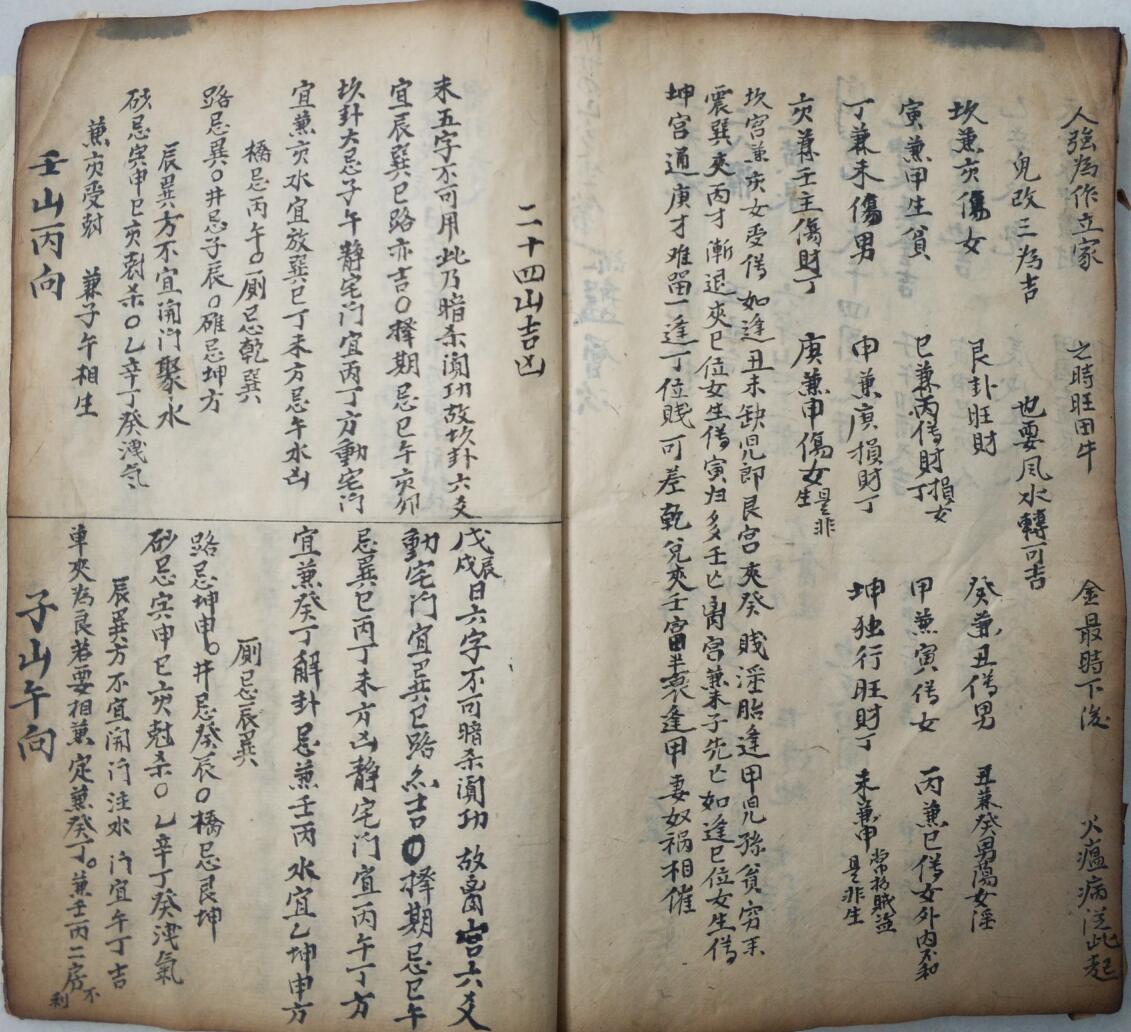 人強為作立家 之時旺田牛 金最時下浚 火瘟病從此起
兒改三為吉 也要風水轉可吉
坎兼亥傷女 艮卦旺財 癸兼丑傷男 丑兼癸男蕩女淫
寅兼甲生貧 巳兼丙傷財丁損女 甲兼寅傷女 丙兼巳傷女外內不和
丁兼未傷男 申兼庚損財丁 坤独行旺財丁 未兼申常招賊盜是非生
亥兼壬主傷財丁 庚兼申傷女生是非
坎宮兼亥女受傷如逢丑未缺兒郎艮宮夾癸賤淫胎逢甲兒孫貧窮來
震巽夾丙才漸退夾巳位女生傷寅归多壬亡离宮兼未子先亡如逢巳位女生傷
坤宮通庚才难留一逢丁位賤可差乾兌夾壬富半衰逢甲妻奴禍相催
二十四山吉凶
未五字不可用此乃暗杀润功故坎卦六爻
宜辰巽巳路亦吉〇擇期忌巳午亥卯
坎卦大忌子午静宅门宜丙丁方動宅门
宜兼亥水宜放巽巳丁未方忌午水凶
橋忌丙午〇厠忌乾巽
路忌巽〇井忌子辰〇碓忌坤方
辰巽方不宜開门聚水
砂忌寅申巳亥尅杀〇乙辛丁癸洩气
兼亥受尅 兼子午相生
壬山丙向
戊辰戌日六字不可暗杀润功故离宮六爻
動宅门宜巽巳路亦吉〇擇期忌巳午
忌巽巳丙丁未方凶静宅门宜丙午丁方
宜兼癸丁解卦忌兼壬丙水宜乙坤申方
厠忌辰巽
路忌坤申〇井忌癸辰〇橋忌艮坤
砂忌寅申巳亥尅杀〇乙辛丁癸洩氣
辰巽方不宜開门注水门宜午丁吉
車夾為良若要相兼定兼癸丁。兼壬丙二房不利
子山午向